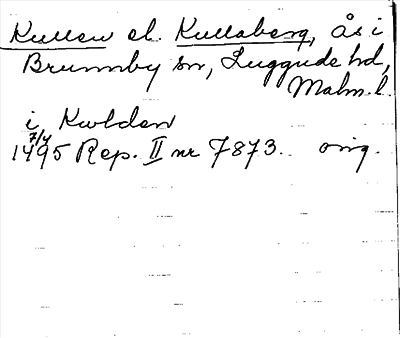 Kullen el. Kullaberg, Ås i
Brunnby sn, Luggude hd,
Malm. l.
i Kwlden
7/4
1495 Rep. II nr 7873. orig.